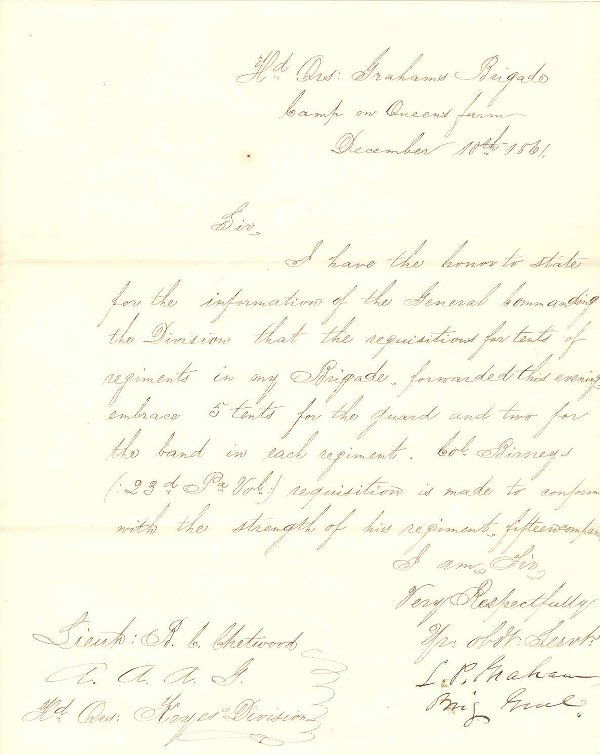 Hd. Qrs: Grahams Brigade
Camp on Queens farm
December 10th 1861.
Sir,
I have the honor to state
for the information of the General Commanding
the Division that the requisitions for tents of
regiments in my Brigade, forwarded this evening,
embrace 5 tents for the guard and two for
the band in each regiment. Col. Birneys
(: 23d Pa Vol:) requisition is made to conform
with the strength of his regiment, fifteen compan
I am, Sir,
Very Respectfully
Yr. obdt. Servt.
L. P. Graham
Brig Genl.
Lieut: R. C. Chetwood
A. A. A. G.
Hd. Qrs: Keyes Division